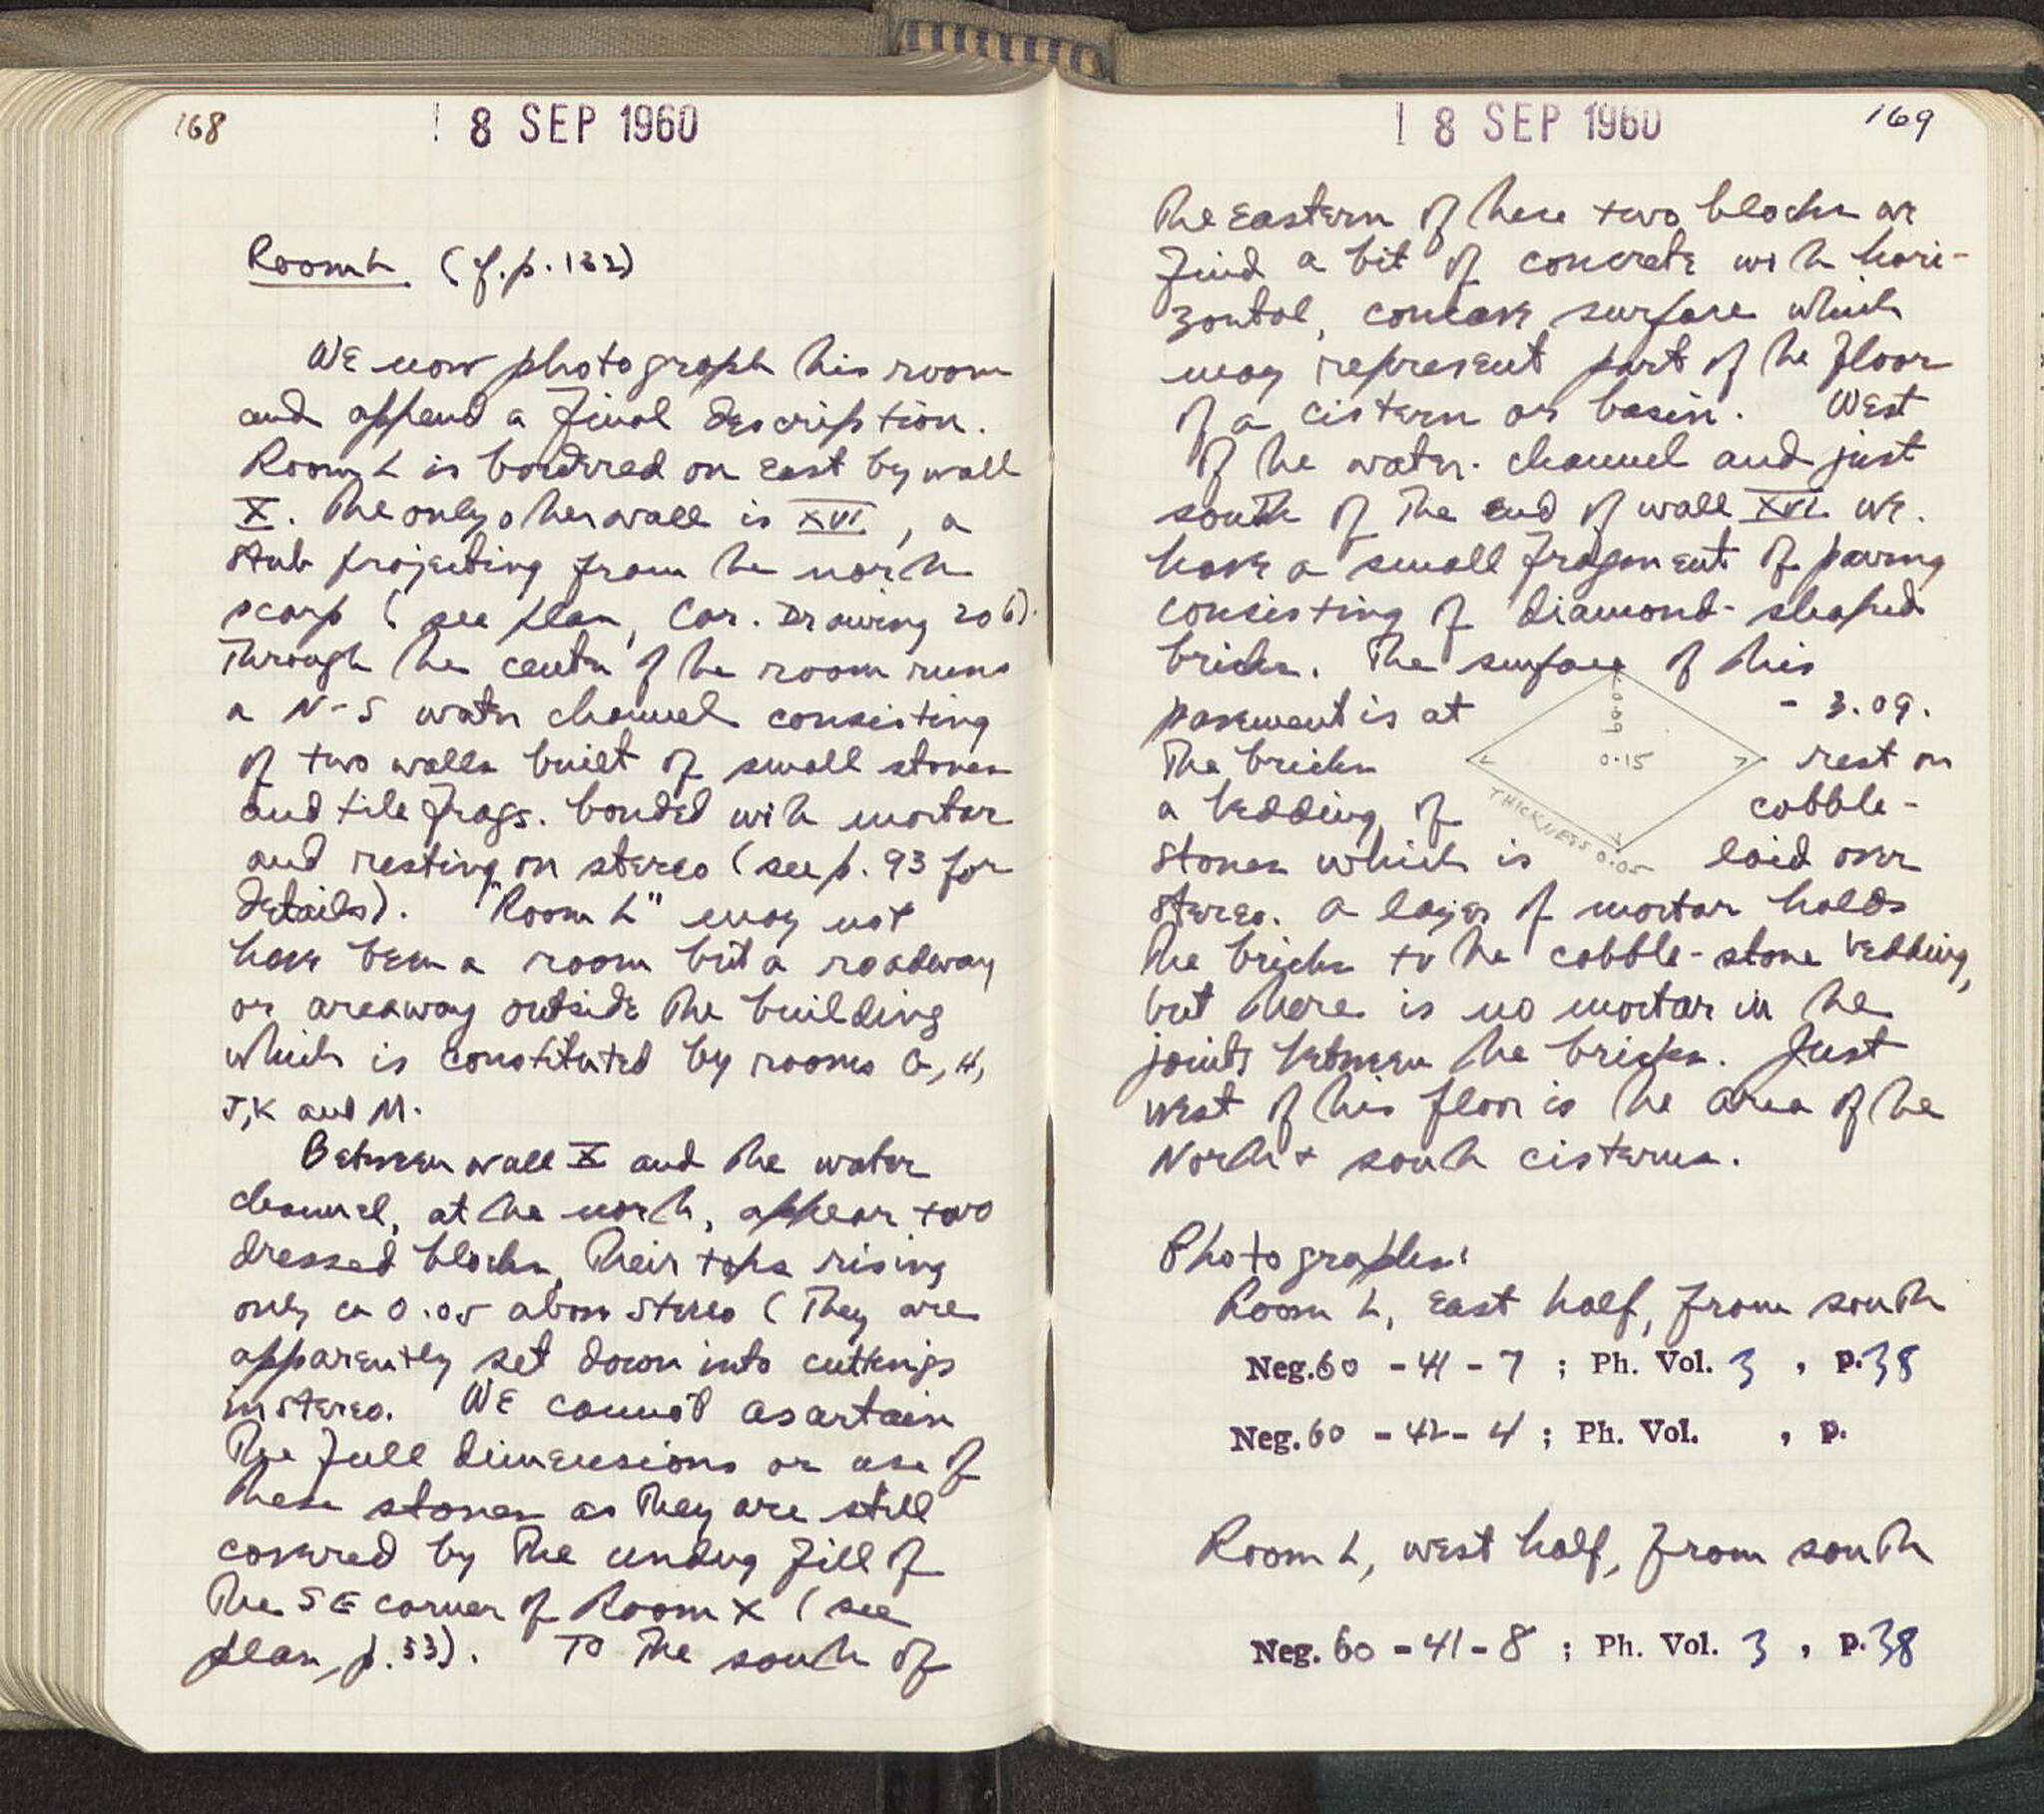 168
18 SEP 1960
Room L (cf. p. 132)
We now photograph this room
and append a final description.
Room L is bordered on east by wall
X. The only other wall is XVI, a
stub projecting from the north
scarp (see plan, Cor. Drawing 206).
Through the center of the room runs
a N-S water channel consisting
of two walls built of small stones
and tile frags. bonded with mortar
and resting on stereo (see p. 93 for
details). "Room L" may not
have been a room but a roadway
or areaway outside the building
which is constituted by rooms G, H,
J, K and M.
Between wall X and the water
channel, at the north, appear two
dressed blocks, their tops rising
only ca 0.05 above stereo (They are
apparently set down into cuttings
in stereo. We cannot asartain
the full dimensions or use of
these stones as they are still
covered by the undug fill of
the SE corner of Room X (see
plan, p. 53). To the south of
18 SEP 1960
169
the eastern of these two blocks we
find a bit of concrete with hori-
zontal, concave surface which
may represent part of the floor
of a cistern or basin. West
of the water channel and just
south of the end of wall XVI we
have a small fragment of paving
consisting of diamond-shaped
bricks. The surface of this
pavement is at - 3.09.
The bricks rest on
a bedding of cobble-
stones which is laid over
0.15
THICKNESS 0.05
stereo. A layer of mortar holds
the bricks to the cobble-stone bedding,
but there is no mortar in the
joints between the bricks. Just
west of this floor is the area of the
North + south cisterns.
Photographs:
Room L, East half, from south
Neg. 60 - 41 - 7 ; Ph. Vol. 3 , p. 38
Neg. 60 - 42 - 4 ; Ph. Vol. , p.
Room L, west half, from south
Neg. 60 - 41 - 8 ; Ph. Vol. 3 , p. 38